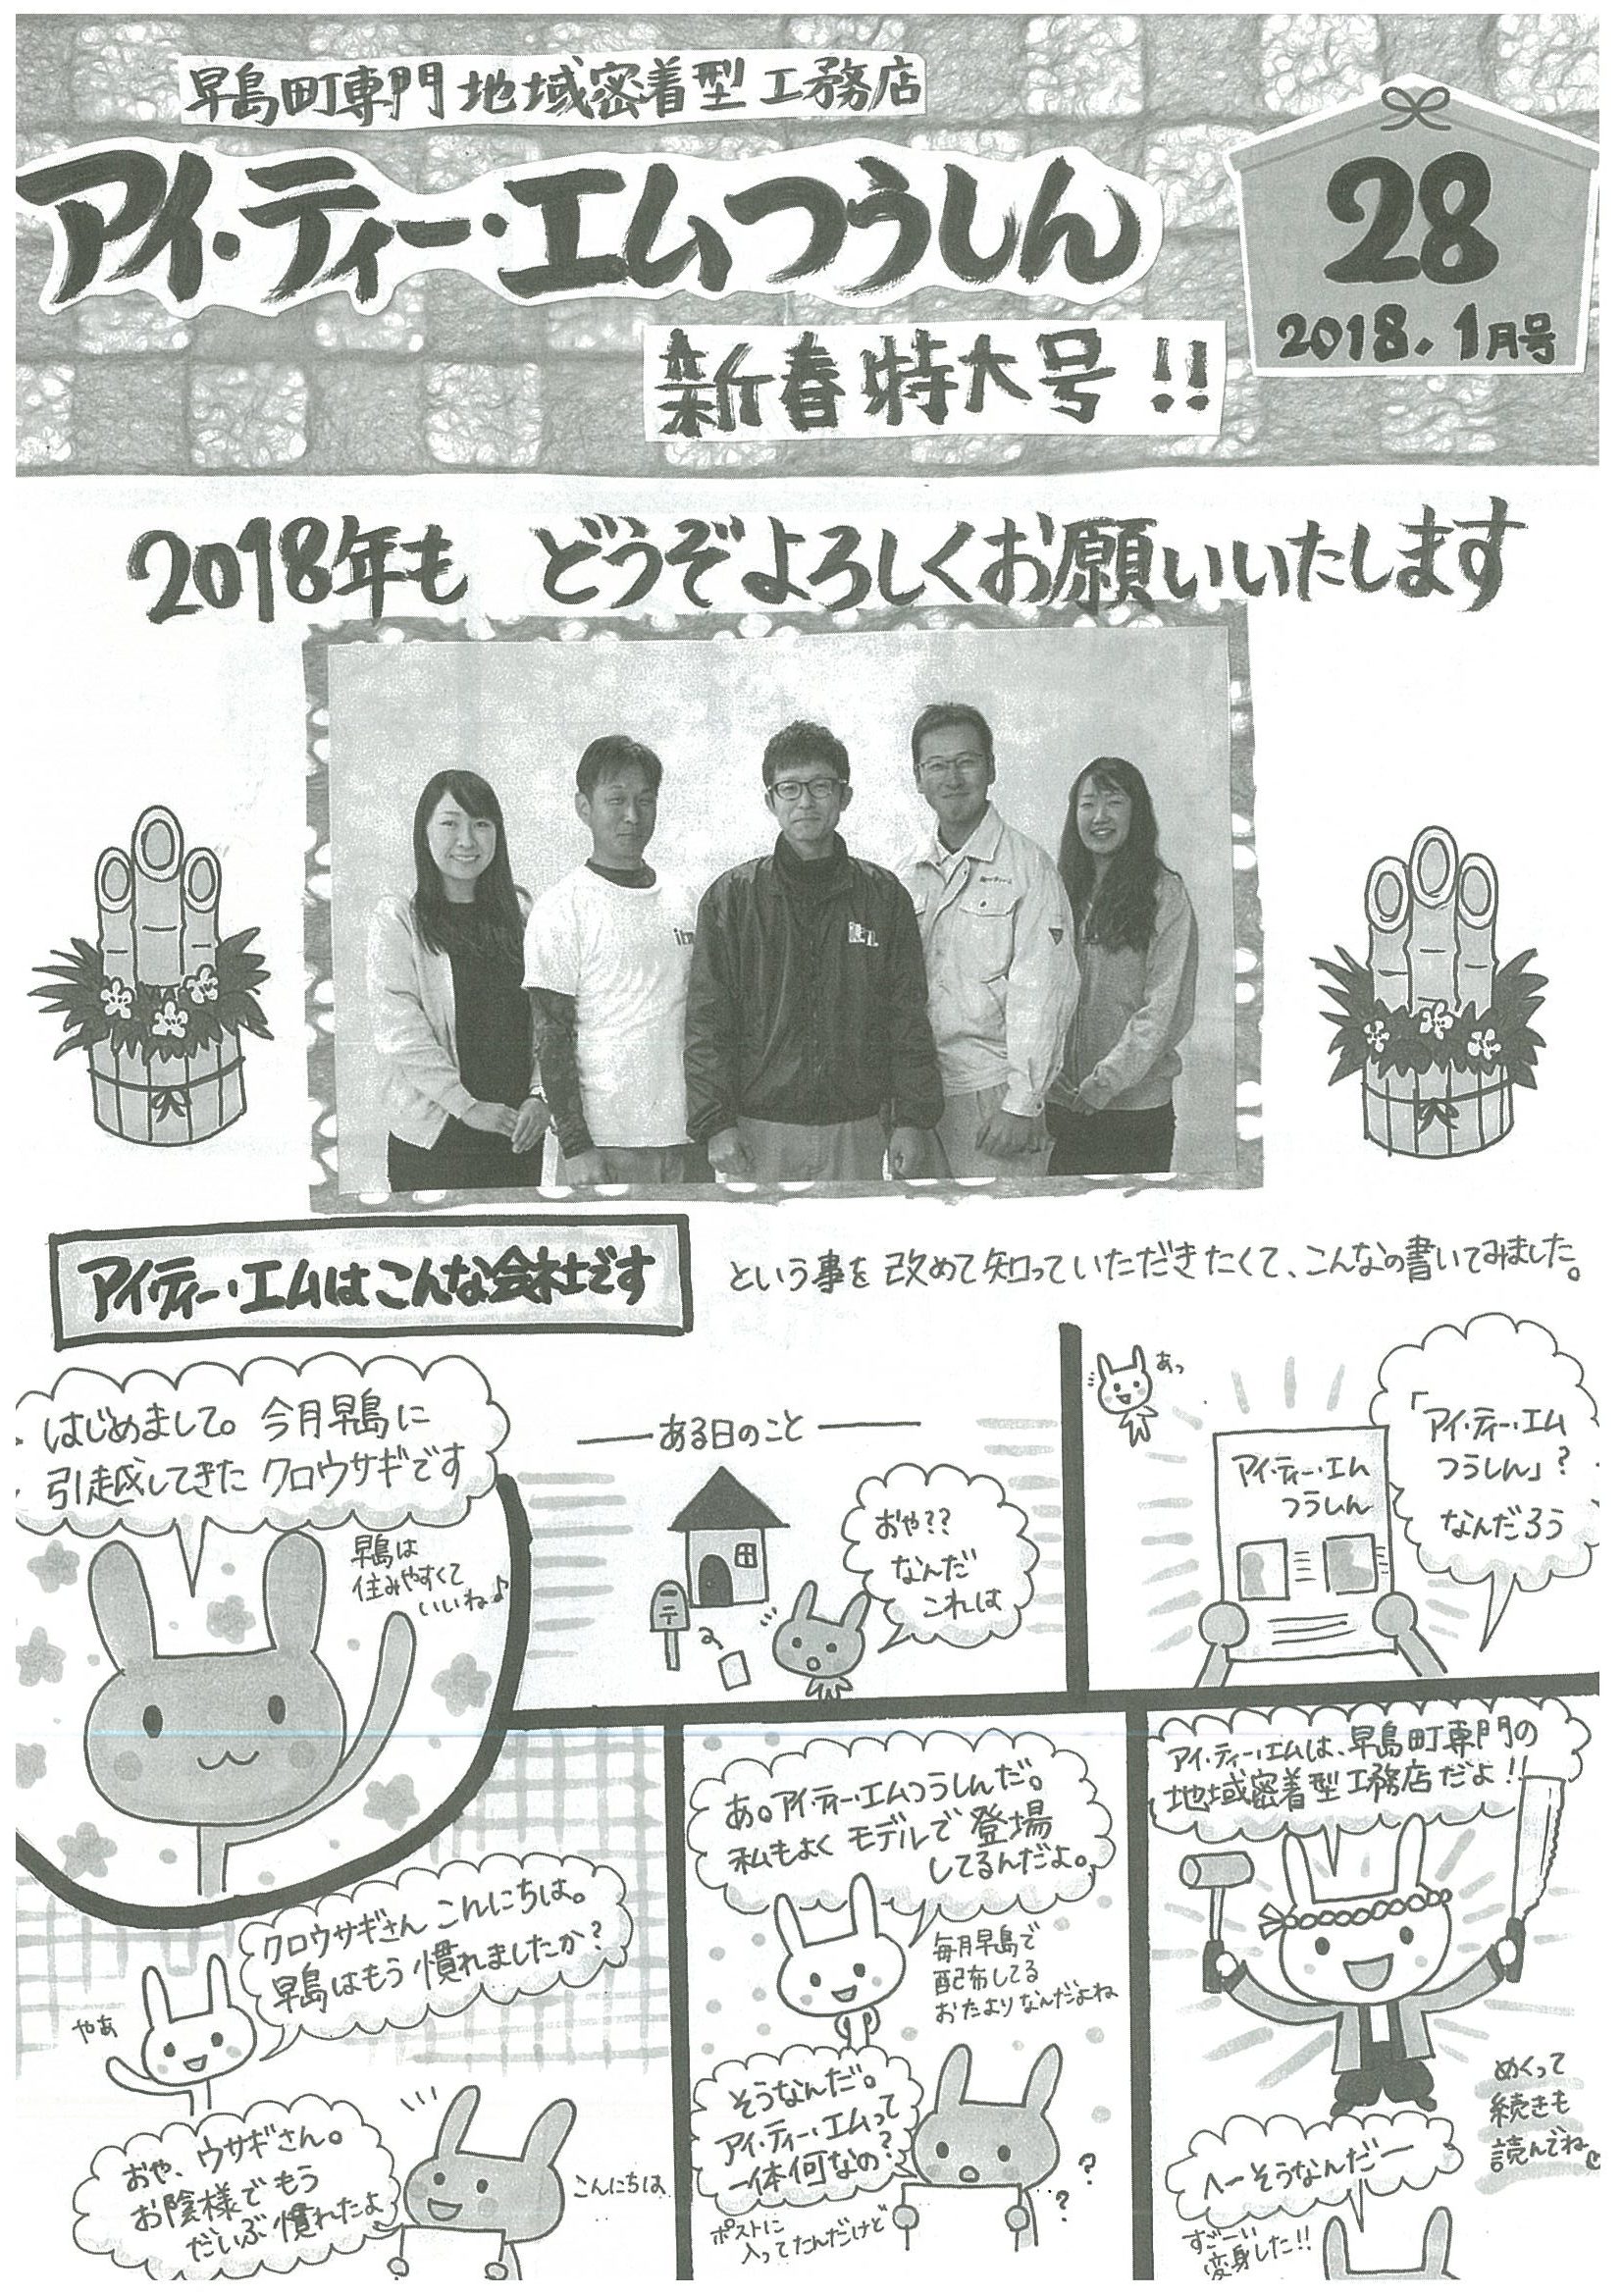 早島町専門 地域密着型 工務店
アイ・ティー・エムつうしん
28
2018. 1月号
新春特大号!!
2018年も どうぞよろしくお願いいたします
アイ・ティー・エムはこんな会社です
という事を 改めて知っていただきたくて、こんなの書いてみました。
はじめまして。今月早島に
引越してきた クロウサギです
早島は
住みやすくて
いいね♪
ある日のこと
おや??
なんだ
これは
〒
あっ
アイ・ティー・エム
つうしん
「アイ・ティー・エム
つうしん」?
なんだろう
クロウサギさん こんにちは。
早島はもう 慣れましたか?
やあ
おや、ウサギさん。
お陰様でもう
だいぶ 慣れたよ
こんにちは
あ。アイ・ティー・エムつうしんだ。
私もよく モデルで 登場
してるんだよ。
毎月早島で
配布してる
おたよりなんだよね
そうなんだ。
アイ・ティー・エムって
一体何なの?
?
?
ポストに
入ってたんだけど
アイ・ティー・エムは、早島町専門の
地域密着型 工務店だよ!
めくって
続きも
読んでね
へーそうなんだー
すごーい
変身した!!